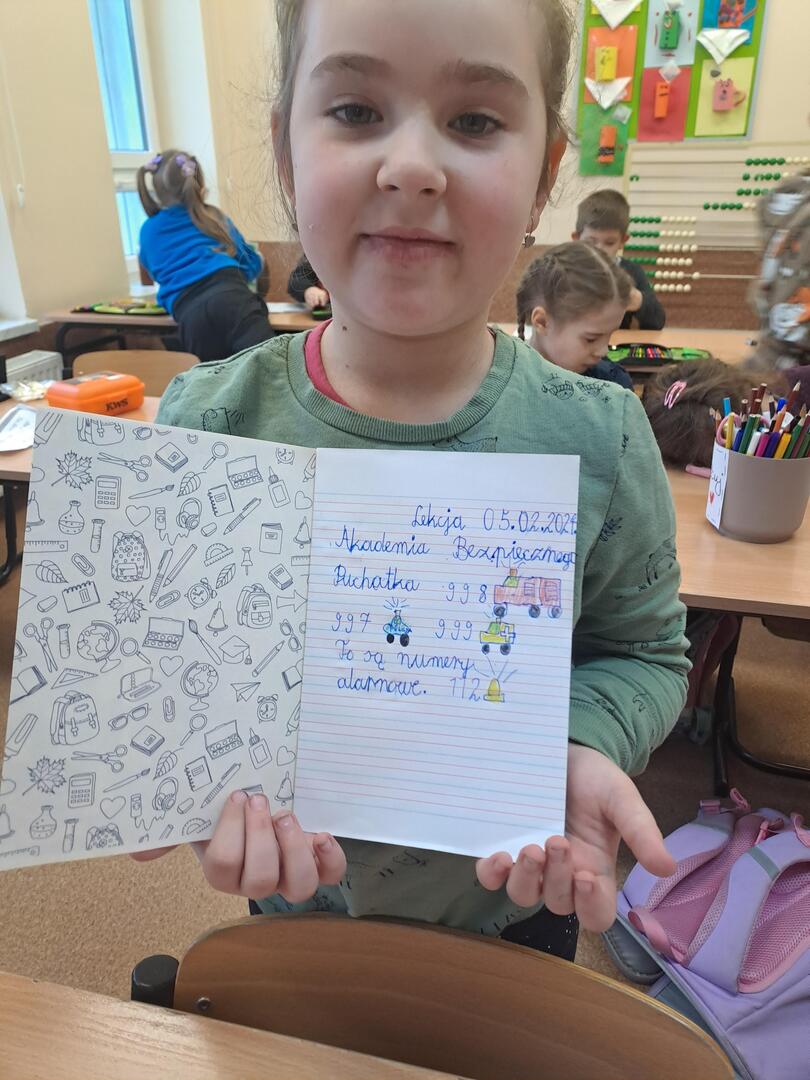 Lekcja 05.02.2024
Akademia Bezpiecznego
Puchatka 998
997 999
To są numery
alarmowe. 112
KWS